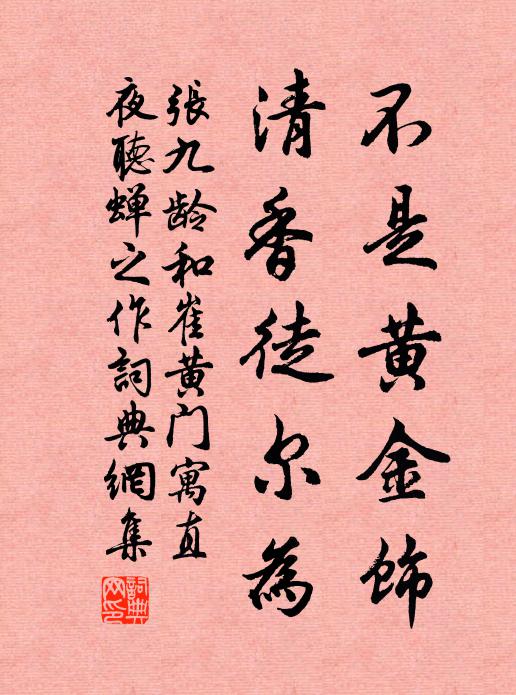 不是黄金飾
清香徒尔為
張九龄和崔黄门寓直
夜聽蝉之作詞典網集
詞典网印